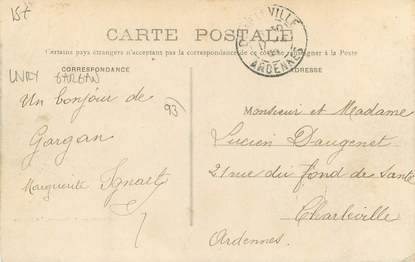 15+
CARTE POSTALE
Certains pays étrangers n'acceptent pas la correspondance de ce côté, se renseigner à la Poste
CORRESPONDANCE
ADRESSE
CHARLEVILLE
ARDENNES
LIVRY GARGAN
93
Un bonjour de
Gargan
Marguerite
Monsieur et Madame
Lucien Daugenet
21 rue du fond de Santé
Charleville
Ardennes.